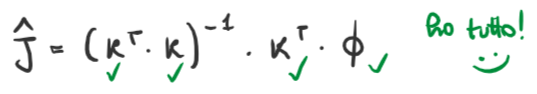 Ĵ = (K^T · K)^-1 · K^T · ϕ ho tutto!